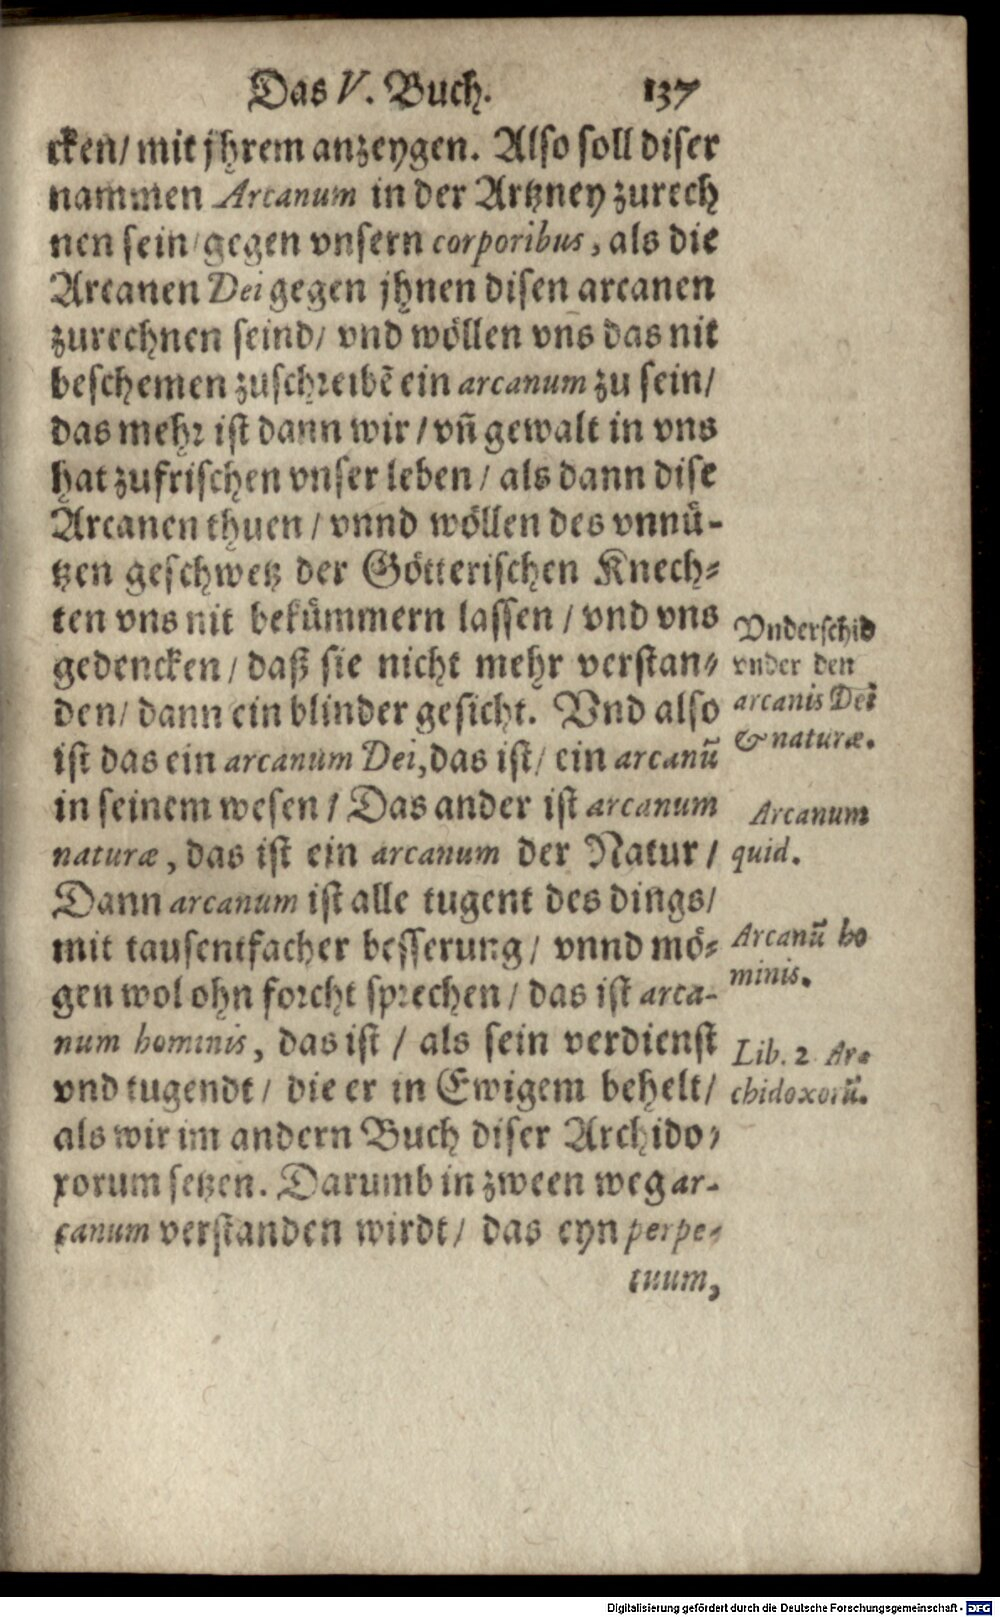 Das V. Buch. 137
cken/ mit jhrem anzeygen. Also soll diser
nammen Arcanum in der Artzney zurech
nen sein/ gegen vnsern corporibus, als die
Arcanen Dei gegen jhnen disen arcanen
zurechnen seind/ vnd wöllen vns das nit
beschemen zuschreibē ein arcanum zu sein/
das mehr ist dann wir / vñ gewalt in vns
hat zufrischen vnser leben / als dann dise
Arcanen thuen / vnnd wöllen des vnnü-
tzen geschwetz der Götterischen Knech-
ten vns nit bekümmern lassen / vnd vns
gedencken / daß sie nicht mehr verstan-
den/ dann ein blinder gesicht. Vnd also
ist das ein arcanum Dei, das ist/ ein arcanū
in seinem wesen / Das ander ist arcanum
naturæ, das ist ein arcanum der Natur /
Dann arcanum ist alle tugent des dings/
mit tausentfacher besserung / vnnd mö-
gen wol ohn forcht sprechen / das ist arca-
num hominis, das ist / als sein verdienst
vnd tugendt / die er in Ewigem behelt/
als wir im andern Buch diser Archido-
xorum setzen. Darumb in zween weg ar-
canum verstanden wirdt / das eyn perpe-
tuum,
Vnderschid
vnder den
arcanis Dei
& naturæ.
Arcanum
quid.
Arcanū ho
minis.
Lib. 2 Ar-
chidoxorū.
Digitalisierung gefördert durch die Deutsche Forschungsgemeinschaft - DFG